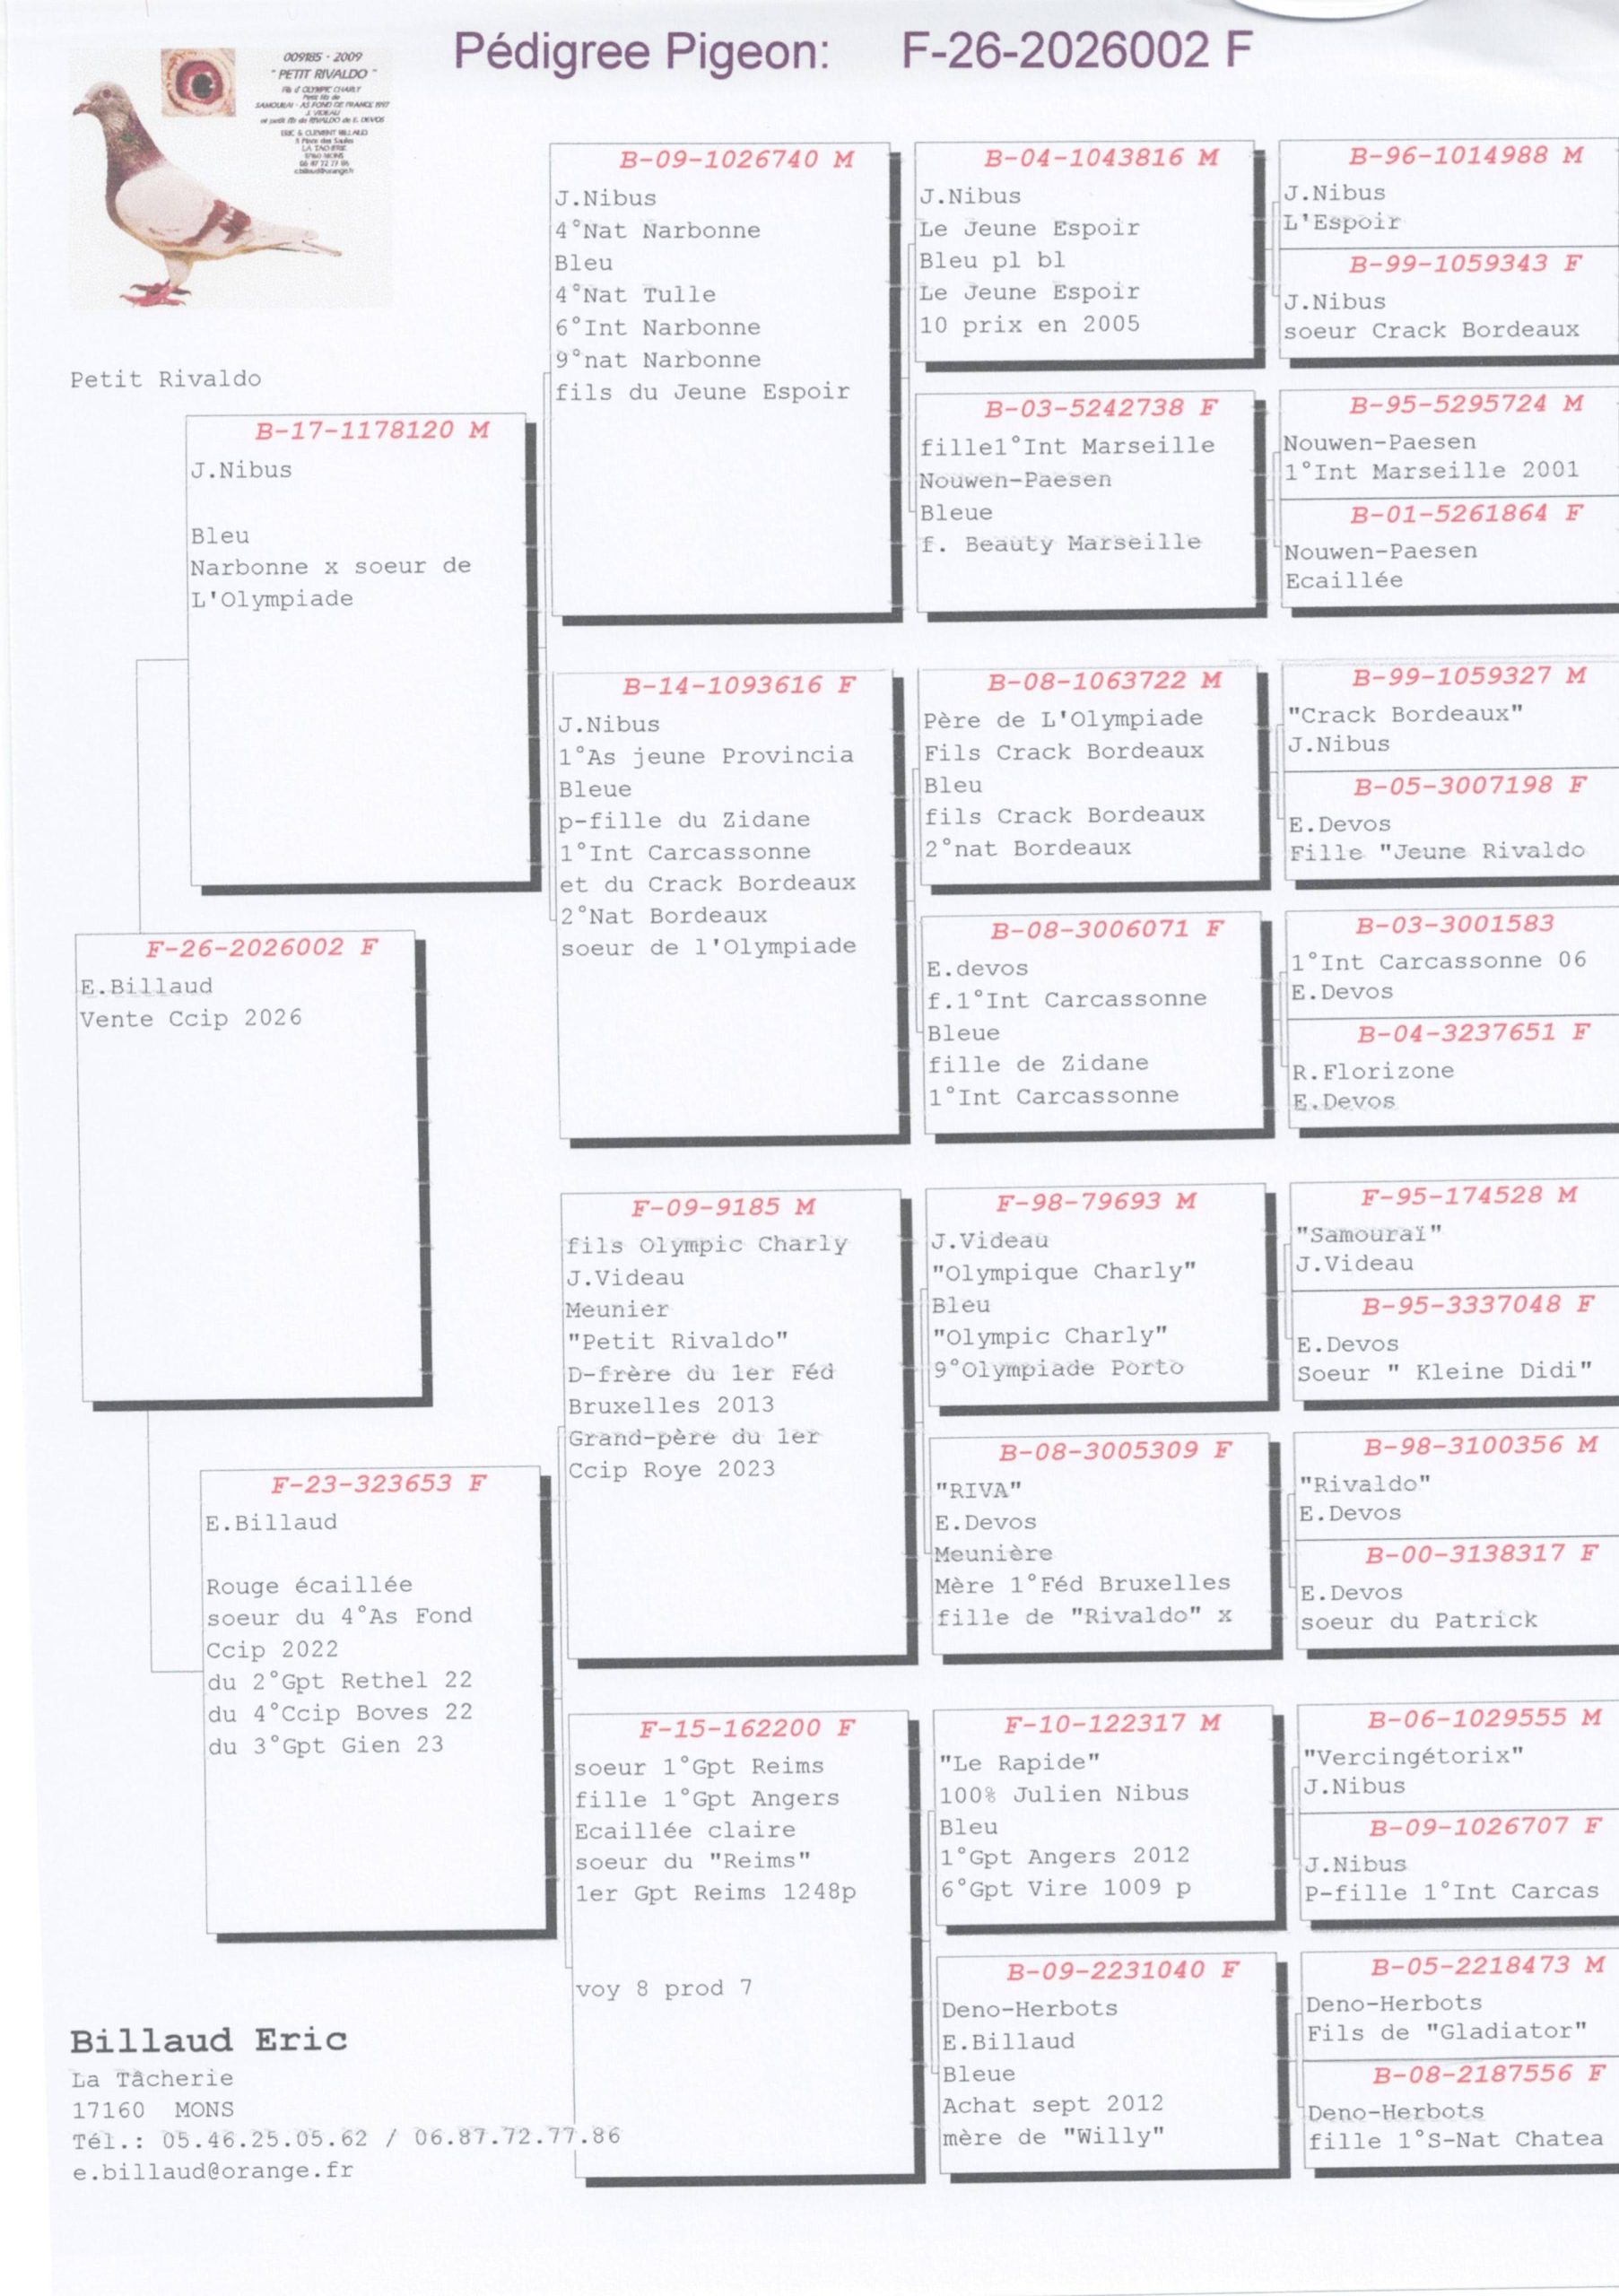 Pédigree Pigeon: F-26-2026002 F
009185 - 2009
" PETIT RIVALDO "
Fils d' OLYMPIC CHARLY
Petit fils de
SAMOURAI - AS FOND DE FRANCE 1997
J. VIDEAU
et petit fils de RIVALDO de E. DEVOS
ERIC & CLEMENT BILLAUD
LA TACHERIE
17160 MONS
06 87 72 77 86
Petit Rivaldo
B-17-1178120 M
J.Nibus
Bleu
Narbonne x soeur de
L'Olympiade
F-26-2026002 F
E.Billaud
Vente Ccip 2026
F-23-323653 F
E.Billaud
Rouge écaillée
soeur du 4°As Fond
Ccip 2022
du 2°Gpt Rethel 22
du 4°Ccip Boves 22
du 3°Gpt Gien 23
B-09-1026740 M
J.Nibus
4°Nat Narbonne
Bleu
4°Nat Tulle
6°Int Narbonne
9°nat Narbonne
fils du Jeune Espoir
B-14-1093616 F
J.Nibus
1°As jeune Provincia
Bleue
p-fille du Zidane
1°Int Carcassonne
et du Crack Bordeaux
2°Nat Bordeaux
soeur de l'Olympiade
F-09-9185 M
fils Olympic Charly
J.Videau
Meunier
"Petit Rivaldo"
D-frère du 1er Féd
Bruxelles 2013
Grand-père du 1er
Ccip Roye 2023
F-15-162200 F
soeur 1°Gpt Reims
fille 1°Gpt Angers
Ecaillée claire
soeur du "Reims"
1er Gpt Reims 1248p
voy 8 prod 7
B-04-1043816 M
J.Nibus
Le Jeune Espoir
Bleu pl bl
Le Jeune Espoir
10 prix en 2005
B-03-5242738 F
fille1°Int Marseille
Nouwen-Paesen
Bleue
f. Beauty Marseille
B-08-1063722 M
Père de L'Olympiade
Fils Crack Bordeaux
Bleu
fils Crack Bordeaux
2°nat Bordeaux
B-08-3006071 F
E.devos
f.1°Int Carcassonne
Bleue
fille de Zidane
1°Int Carcassonne
F-98-79693 M
J.Videau
"Olympique Charly"
Bleu
"Olympic Charly"
9°Olympiade Porto
B-08-3005309 F
"RIVA"
E.Devos
Meunière
Mère 1°Féd Bruxelles
fille de "Rivaldo" x
F-10-122317 M
"Le Rapide"
100% Julien Nibus
Bleu
1°Gpt Angers 2012
6°Gpt Vire 1009 p
B-09-2231040 F
Deno-Herbots
E.Billaud
Bleue
Achat sept 2012
mère de "Willy"
B-96-1014988 M
J.Nibus
L'Espoir
B-99-1059343 F
J.Nibus
soeur Crack Bordeaux
B-95-5295724 M
Nouwen-Paesen
1°Int Marseille 2001
B-01-5261864 F
Nouwen-Paesen
Ecaillée
B-99-1059327 M
"Crack Bordeaux"
J.Nibus
B-05-3007198 F
E.Devos
Fille "Jeune Rivaldo
B-03-3001583
1°Int Carcassonne 06
E.Devos
B-04-3237651 F
R.Florizone
E.Devos
F-95-174528 M
"Samouraï"
J.Videau
B-95-3337048 F
E.Devos
Soeur " Kleine Didi"
B-98-3100356 M
"Rivaldo"
E.Devos
B-00-3138317 F
E.Devos
soeur du Patrick
B-06-1029555 M
"Vercingétorix"
J.Nibus
B-09-1026707 F
J.Nibus
P-fille 1°Int Carcas
B-05-2218473 M
Deno-Herbots
Fils de "Gladiator"
B-08-2187556 F
Deno-Herbots
fille 1°S-Nat Chatea
Billaud Eric
La Tâcherie
17160 MONS
Tél.: 05.46.25.05.62 / 06.87.72.77.86
e.billaud@orange.fr